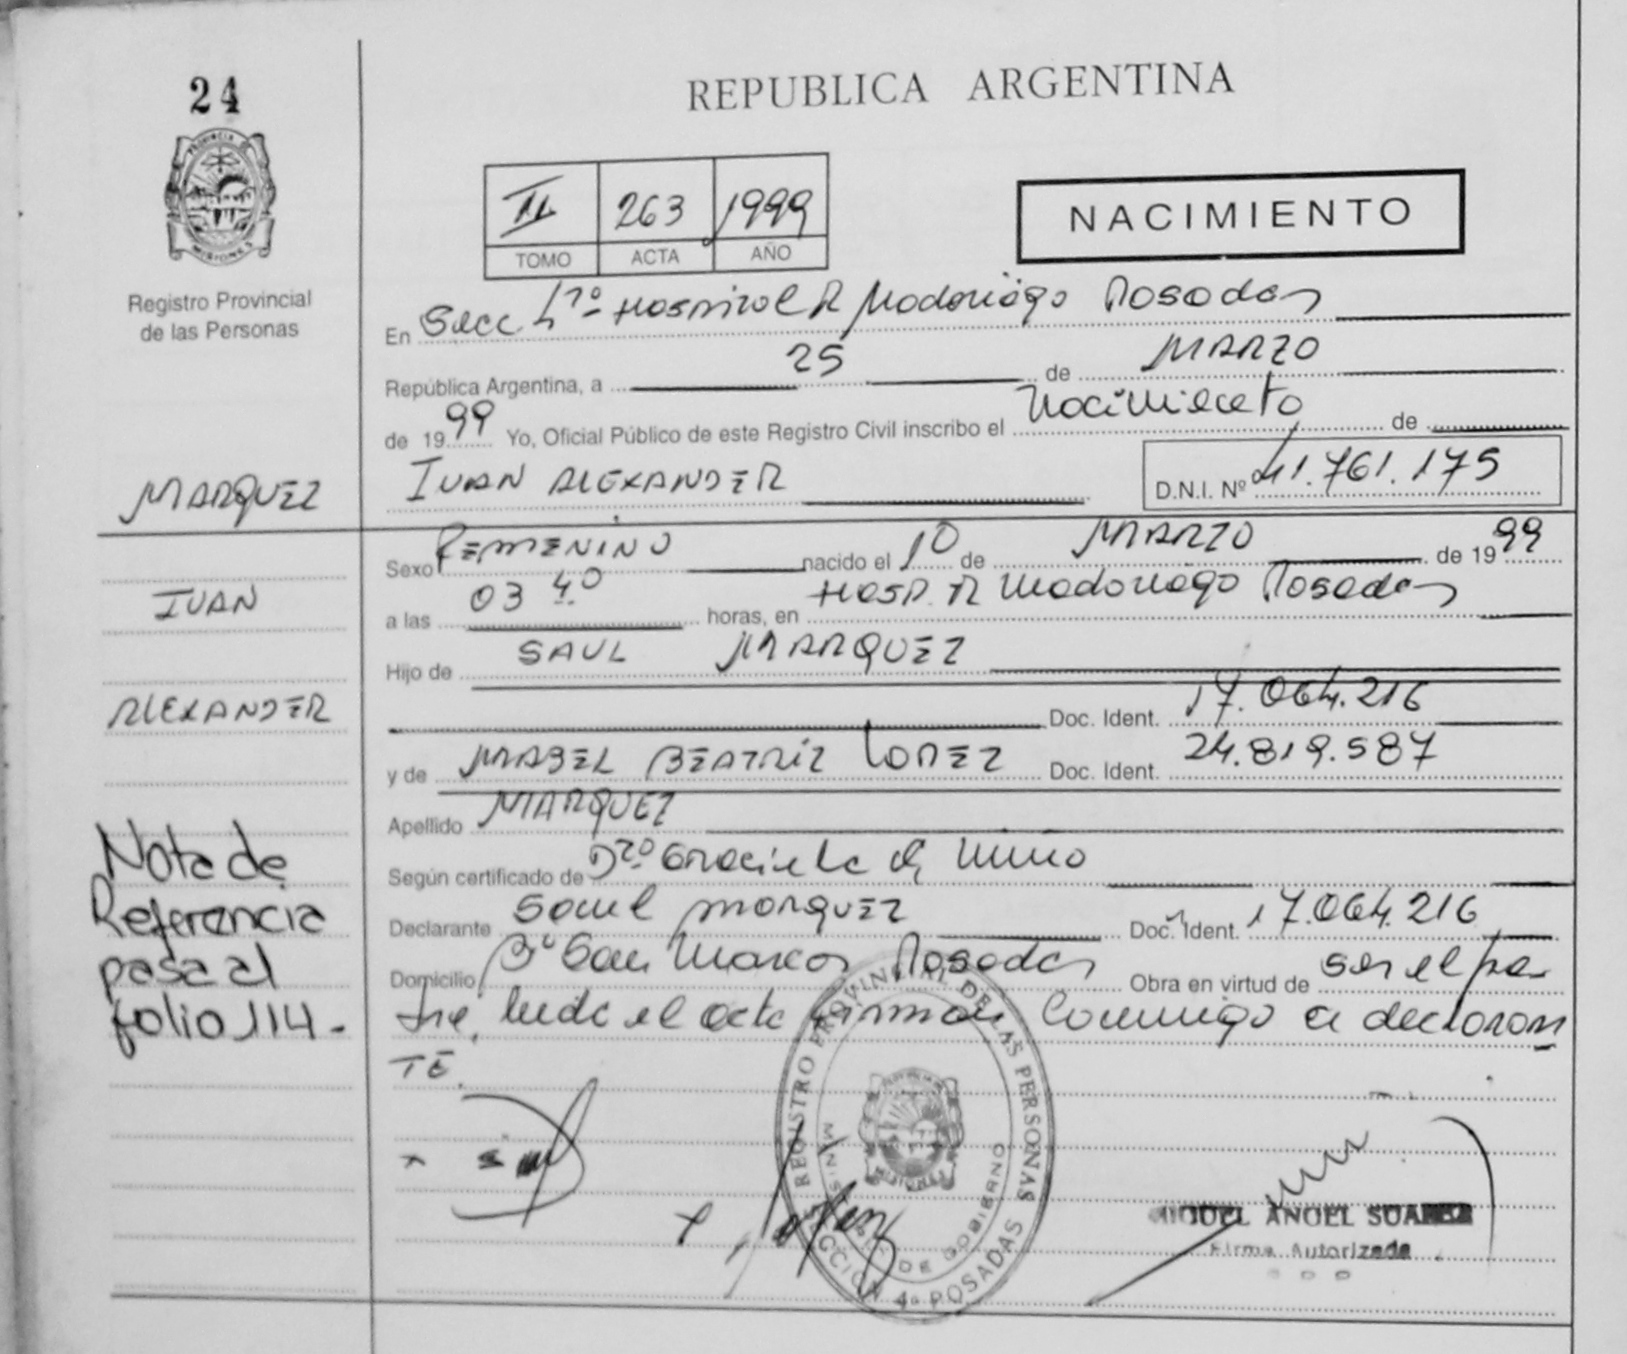 24
REPUBLICA ARGENTINA
PROVINCIA DE
MISIONES
II 263 1999
TOMO ACTA AÑO
NACIMIENTO
Registro Provincial
de las Personas
En Secc 4ta Hospital R Madariaga Posadas
República Argentina, a 25 de MARZO
de 1999 Yo, Oficial Público de este Registro Civil inscribo el Nacimiento de
MARQUEZ
IVAN ALEXANDER D.N.I. Nº 41.761.175
Sexo FEMENINO nacido el 10 de MARZO de 1999
IVAN
a las 03 40 horas, en HOSP. R Madariaga Posadas
Hijo de SAUL MARQUEZ
ALEXANDER
Doc. Ident. 17.064.216
y de MABEL BEATRIZ LOPEZ Doc. Ident. 24.819.587
Apellido MARQUEZ
Según certificado de Dra Graciela
Declarante Saul Marquez Doc. Ident. 17.064.216
Domicilio Bº San Marcos Posadas Obra en virtud de ser el pa-
dre, leida el acta firman Conmigo el declaran
TE.
Nota de
Referencia
pasa al
folio 114.-
REGISTRO PROVINCIAL DE LAS PERSONAS
MINIST. DE GOBIERNO
MISIONES
SECCION 4a POSADAS
MIGUEL ANGEL SUAREZ
Firma Autorizada